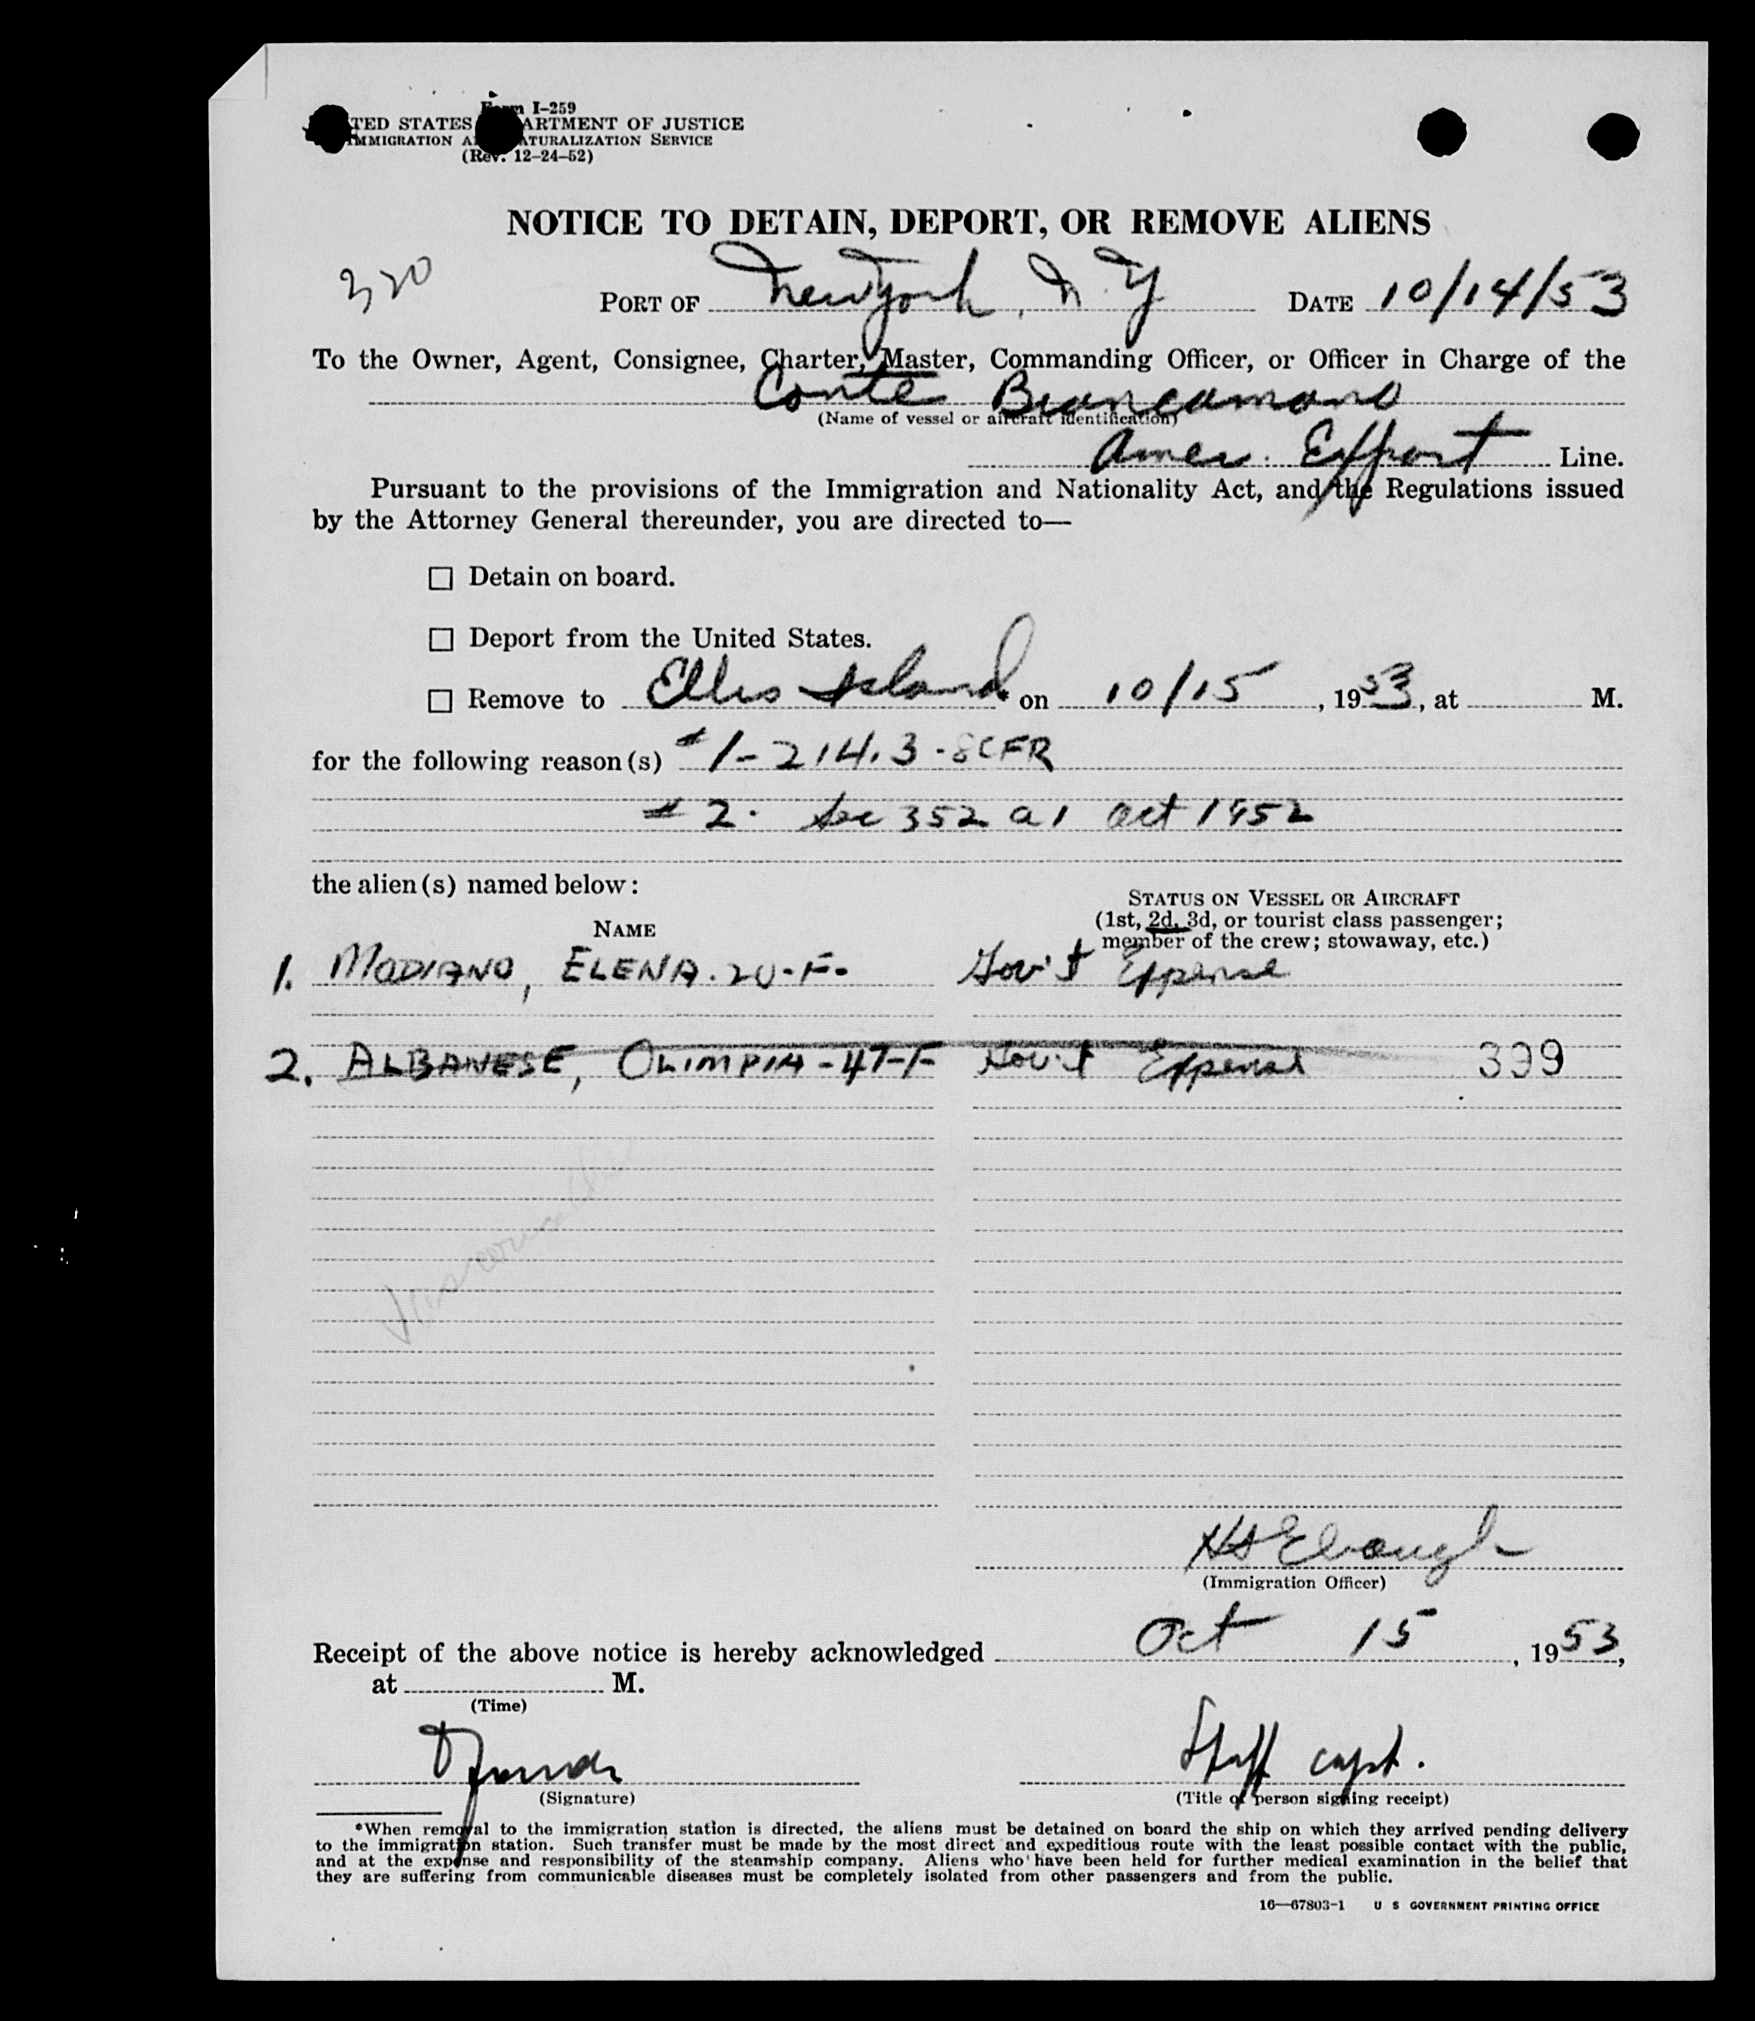 Form I-259
UNITED STATES DEPARTMENT OF JUSTICE
IMMIGRATION AND NATURALIZATION SERVICE
(Rev. 12-24-52)
NOTICE TO DETAIN, DEPORT, OR REMOVE ALIENS
320
PORT OF New York, N.Y. DATE 10/14/53
To the Owner, Agent, Consignee, Charter, Master, Commanding Officer, or Officer in Charge of the
Conte Biancamano
(Name of vessel or aircraft identification)
Amer. Export Line.
Pursuant to the provisions of the Immigration and Nationality Act, and the Regulations issued
by the Attorney General thereunder, you are directed to—
☐ Detain on board.
☐ Deport from the United States.
☐ Remove to Ellis Island on 10/15, 1953, at M.
for the following reason(s) #1-214.3-8CFR
#2. Sec 352 a1 act 1952
the alien(s) named below:
STATUS ON VESSEL OR AIRCRAFT
NAME
(1st, 2d, 3d, or tourist class passenger;
member of the crew; stowaway, etc.)
1. MODIANO, ELENA. 20-F- Gov't Expense
2. ALBANESE, OLIMPIA-47-F Gov't Expense 399
HS Ebaugh
(Immigration Officer)
Receipt of the above notice is hereby acknowledged Oct 15, 1953,
at M.
(Time)
Staff capt.
(Signature) (Title of person signing receipt)
*When removal to the immigration station is directed, the aliens must be detained on board the ship on which they arrived pending delivery
to the immigration station. Such transfer must be made by the most direct and expeditious route with the least possible contact with the public,
and at the expense and responsibility of the steamship company. Aliens who have been held for further medical examination in the belief that
they are suffering from communicable diseases must be completely isolated from other passengers and from the public.
16—67803-1 U S GOVERNMENT PRINTING OFFICE